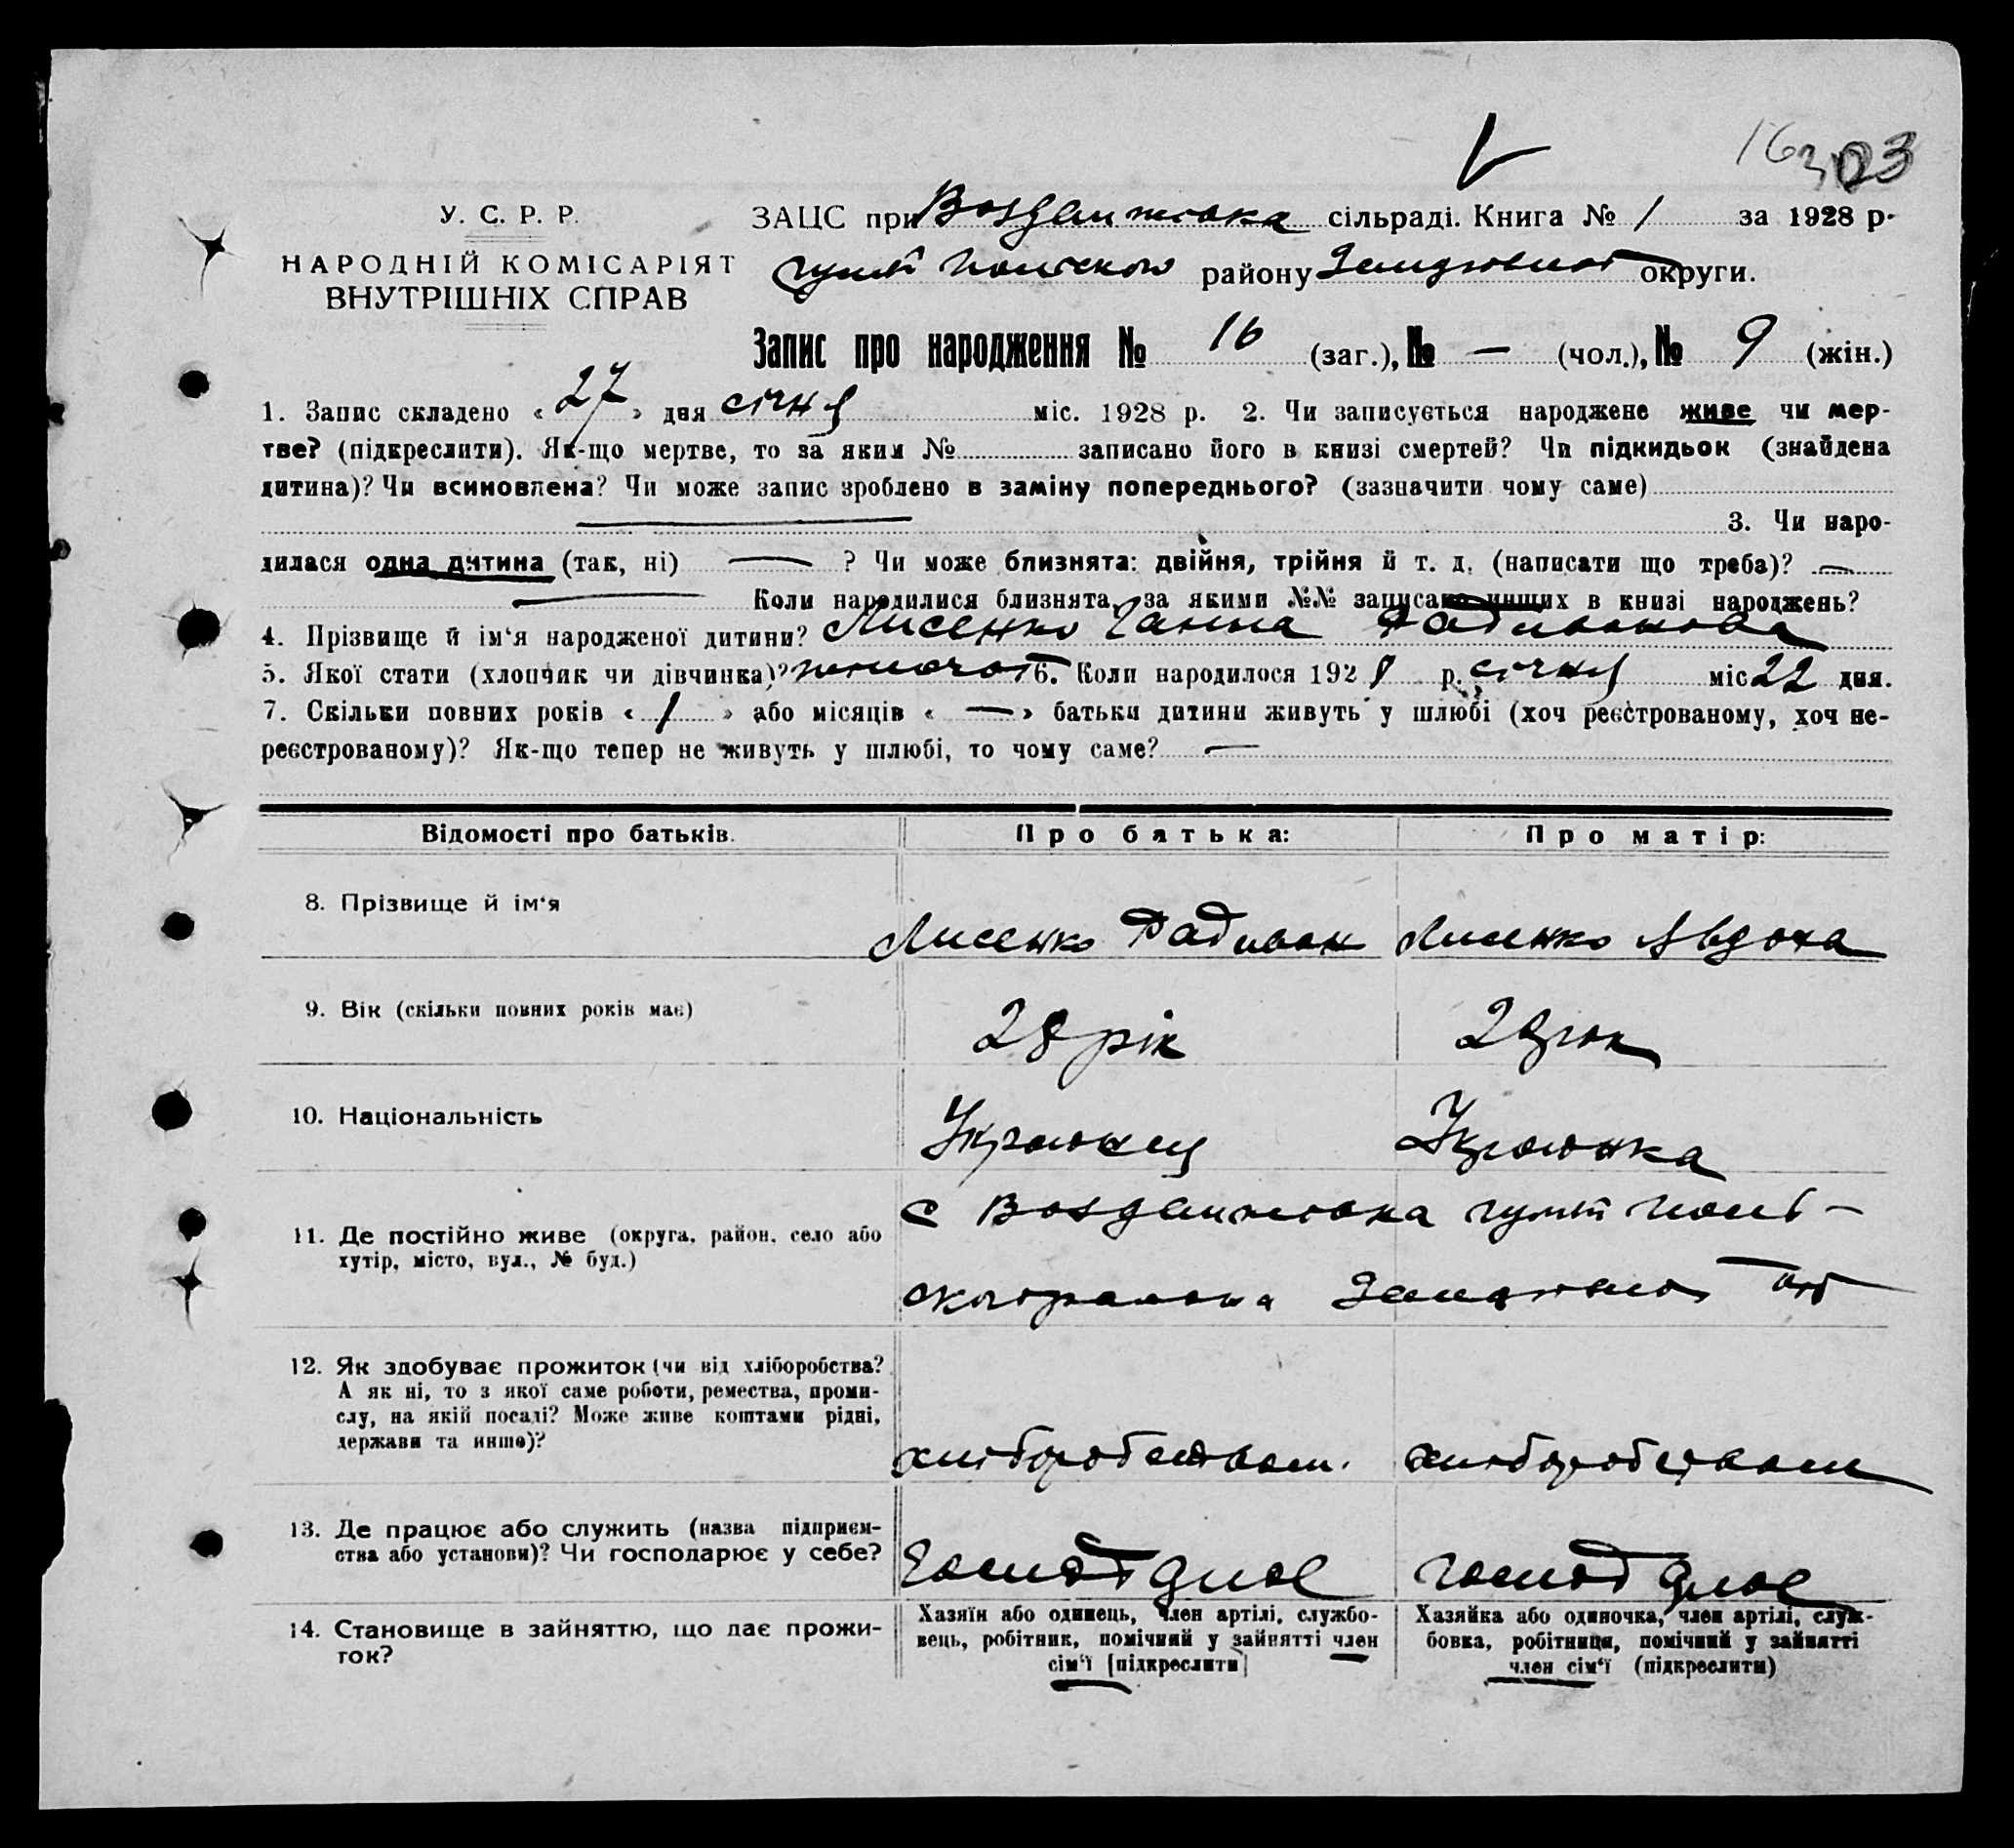 303
У. С. Р. Р.
НАРОДНІЙ КОМІСАРІЯТ
ВНУТРІШНІХ СПРАВ
ЗАЦС при сільраді. Книга № 1 за 1928 р.
району округи.
Запис про народження № 16 (заг.), № — (чол.), № 9 (жін.)
1. Запис складено « 27 » дня січня міс. 1928 р. 2. Чи записується народжене живе чи мер-
тве? (підкреслити). Як-що мертве, то за яким № записано його в книзі смертей? Чи підкидьок (знайдена
дитина)? Чи всиновлена? Чи може запис зроблено в заміну попереднього? (зазначити чому саме)
3. Чи наро-
дилася одна дитина (так, ні) — ? Чи може близнята: двійня, трійня й т. д. (написати що треба)? —
Коли народилися близнята, за якими №№ записано инших в книзі народжень?
4. Прізвище й ім'я народженої дитини? Лисенко Ганна Радивонова
5. Якої стати (хлопчик чи дівчинка)? 6. Коли народилося 1928 р. січня міс 22 дня.
7. Скільки повних років « 1 » або місяців « — » батьки дитини живуть у шлюбі (хоч реєстрованому, хоч не-
реєстрованому)? Як-що тепер не живуть у шлюбі, то чому саме? —
Відомості про батьків. Про батька: Про матір:
8. Прізвище й ім'я Лисенко Радивон Лисенко Авдотя
9. Вік (скільки повних років має) 28 рік 28 рок
10. Національність Українец Українка
11. Де постійно живе (округа, район, село або
хутір, місто, вул., № буд.)
12. Як здобуває прожиток (чи від хліборобства?
А як ні, то з якої саме роботи, ремества, проми-
слу, на якій посаді? Може живе коштами рідні,
держави та инше)? хліборобством. хліборобством
13. Де працює або служить (назва підприєм-
ства або установи)? Чи господарює у себе?
14. Становище в зайняттю, що дає прожи-
ток?
Хазяїн або одинець, член артілі, службо-
вець, робітник, помічний у зайнятті член
сім'ї [підкреслити]
Хазяйка або одиночка, член артілі, служ-
бовка, робітниця, помічний у зайнятті
член сім'ї (підкреслити)